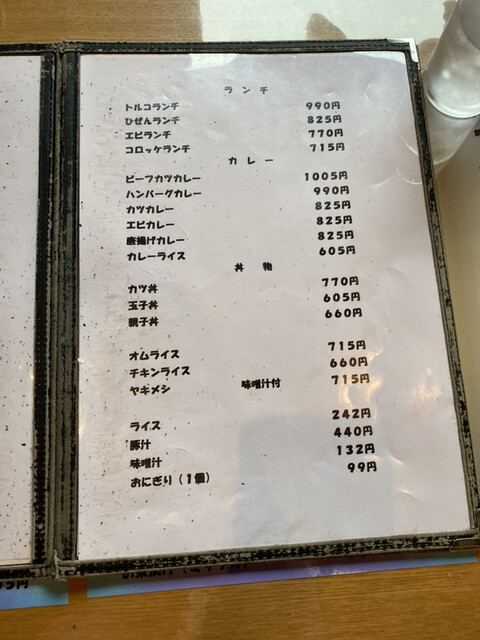 ランチ
トルコランチ 990円
ひぜんランチ 825円
エビランチ 770円
コロッケランチ 715円
カレー
ビーフカツカレー 1005円
ハンバーグカレー 990円
カツカレー 825円
エビカレー 825円
唐揚げカレー 825円
カレーライス 605円
丼 物
カツ丼 770円
玉子丼 605円
親子丼 660円
オムライス 715円
チキンライス 660円
ヤキメシ 味噌汁付 715円
ライス 242円
豚汁 440円
味噌汁 132円
おにぎり（1個） 99円